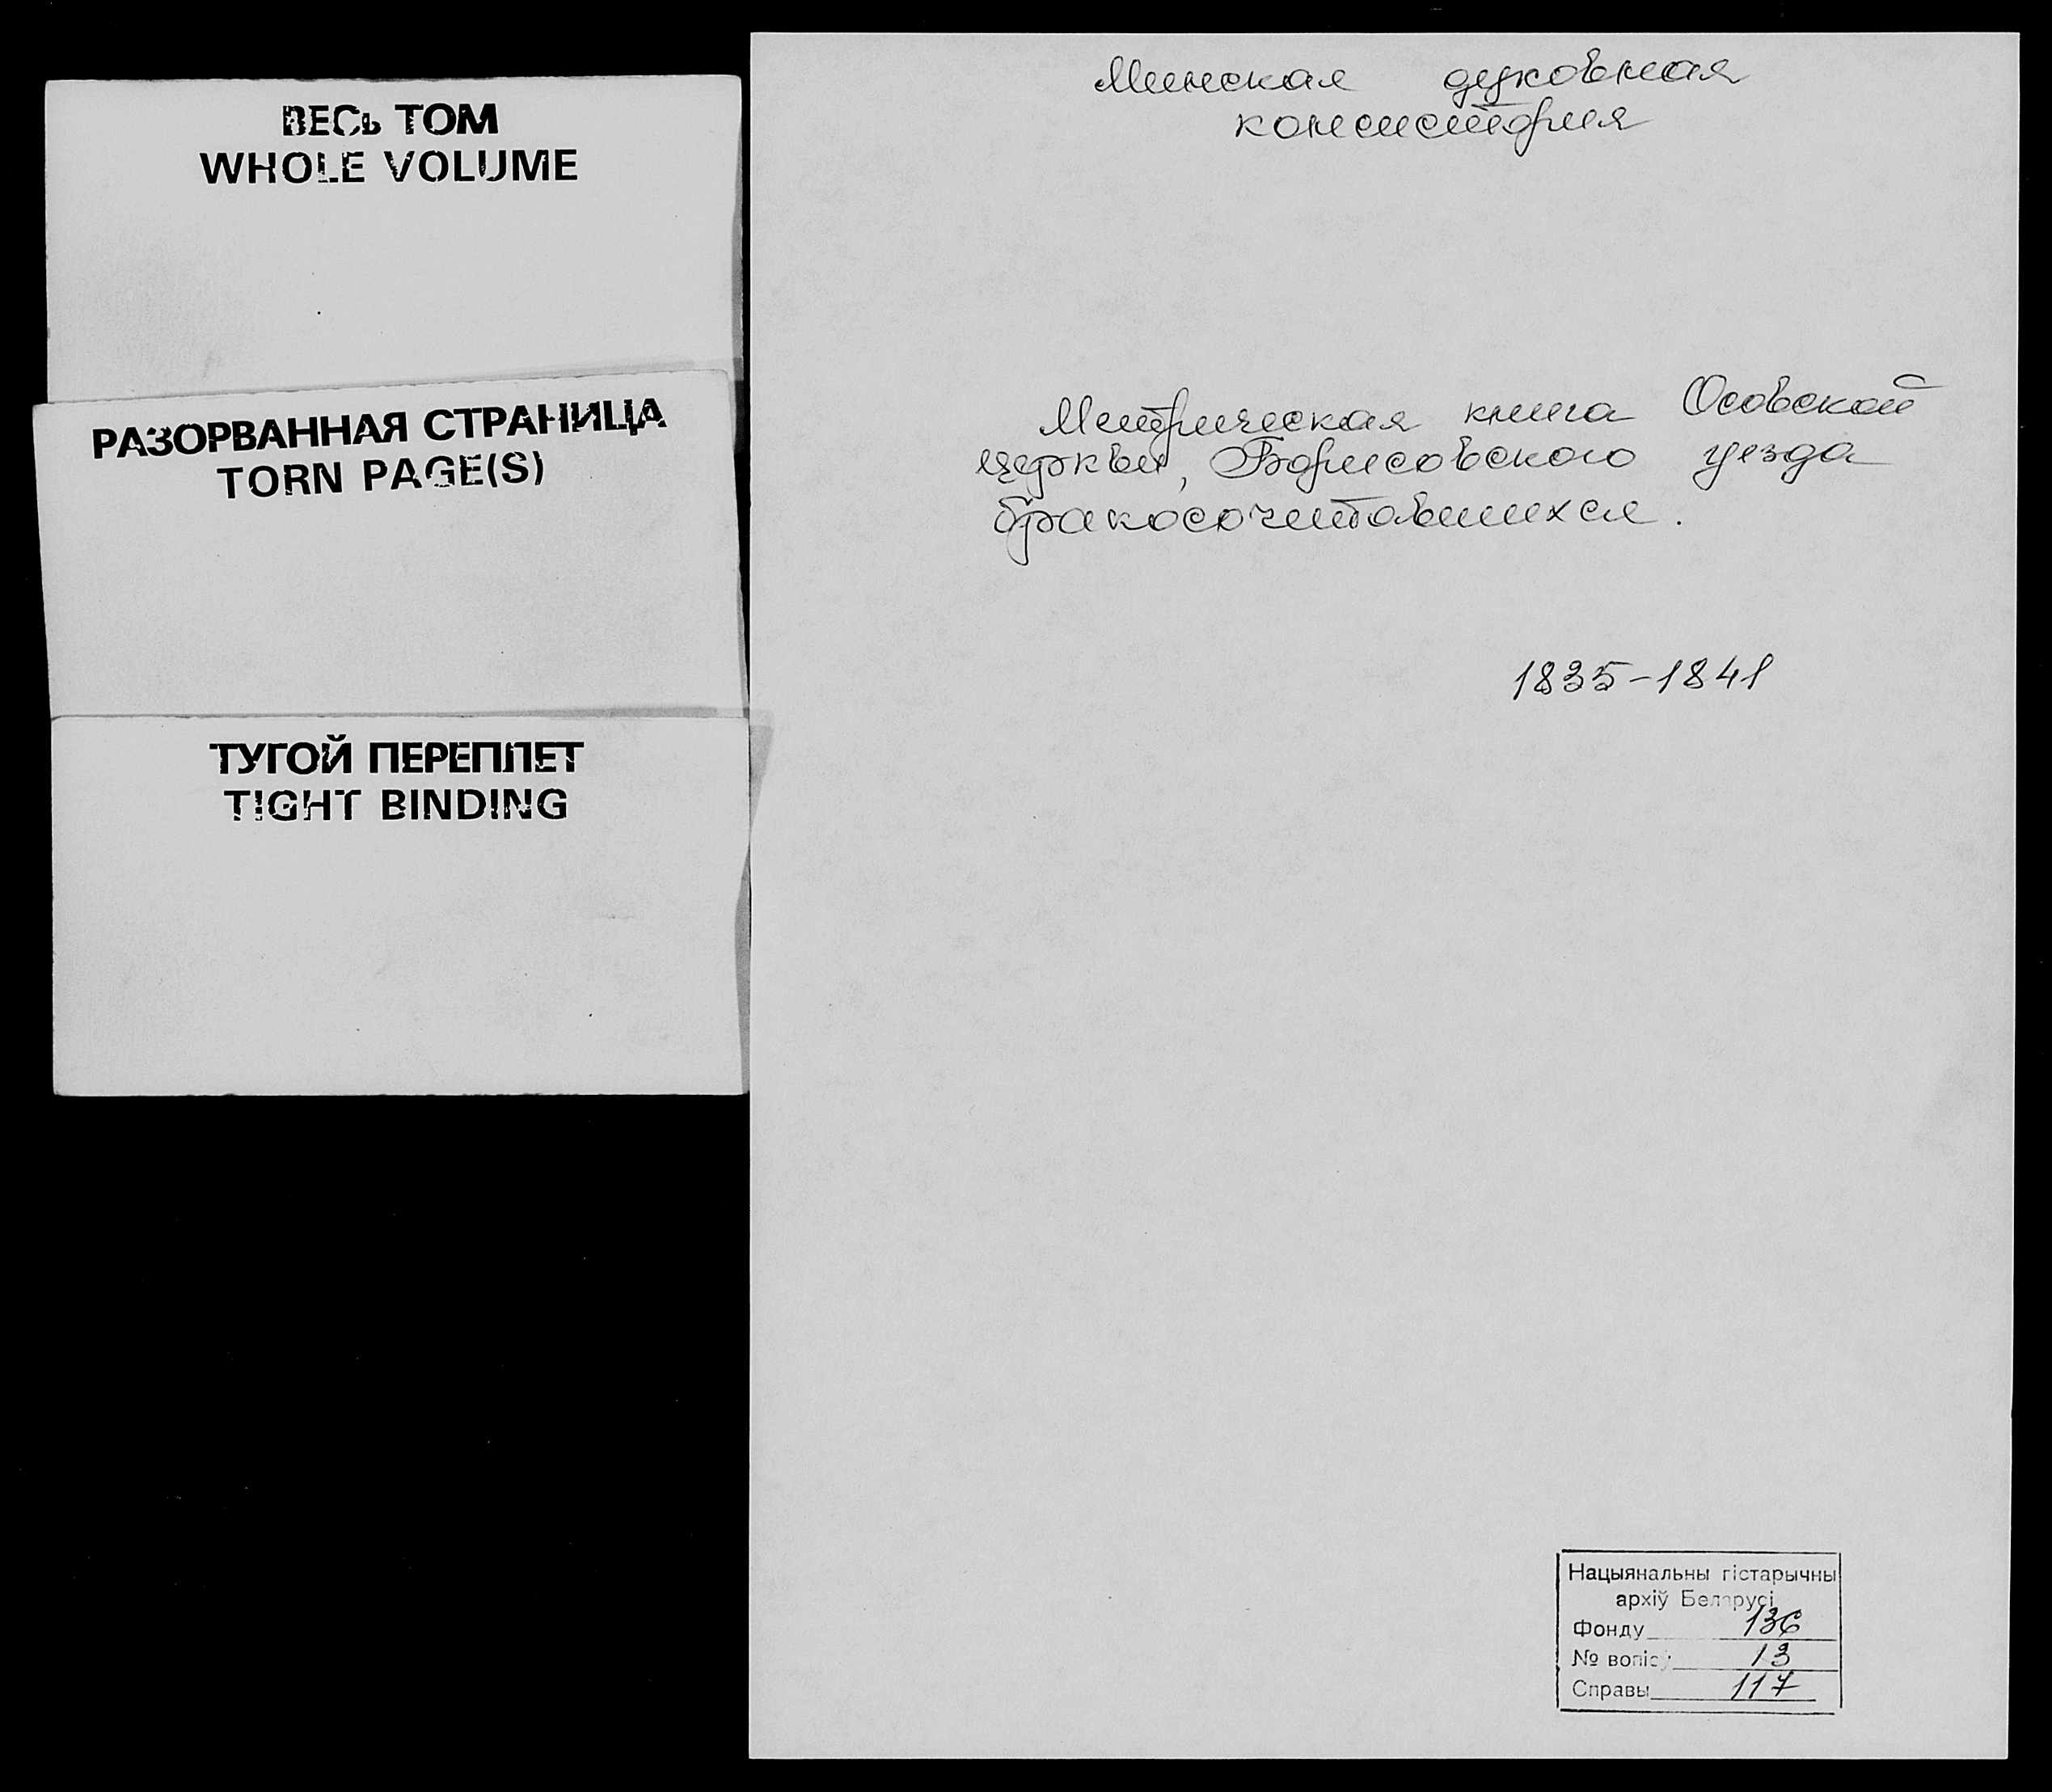 ВЕСЬ ТОМ
WHOLE VOLUME
РАЗОРВАННАЯ СТРАНИЦА
TORN PAGE(S)
ТУГОЙ ПЕРЕПЛЕТ
TIGHT BINDING
Минская духовная
консистория
Метрическая книга Осовской
церкви, Борисовского уезда
бракосочитавшихся.
1835-1841
Нацыянальны гістарычны
архіў Беларусі
Фонду 136
№ вопісу 13
Справы 117